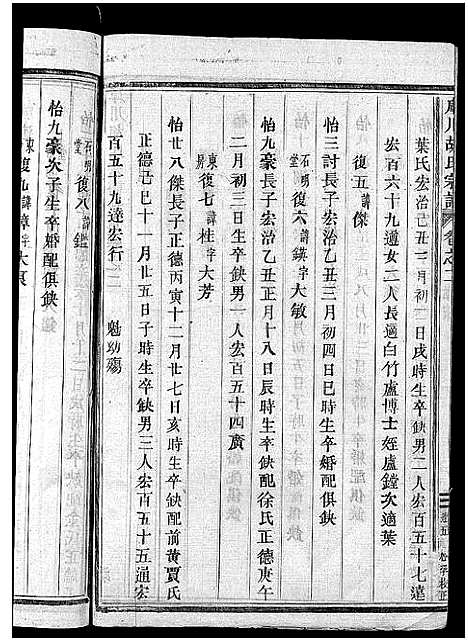 川胡氏宗譜 卷之二
葉氏宏治己丑三月初二日戌時生卒缺男二人宏百五十七達
宏百六十九通女二人長適白竹盧博士姪盧鏜次適葉
復五 諱傑
怡三討長子宏治乙丑三月初四日巳時生卒婚配俱缺
石明堂 復六 諱鍈字大敏
怡九豪長子宏治乙丑正月十八日辰時生卒缺配徐氏正德庚午
二月初三日生卒缺男一人宏百五十四廣
東房 復七 諱桂字大芳
怡廿八傑長子正德丙寅十二月廿七日亥時生卒缺配前黃賈氏
正德己巳十一月廿五日子時生卒缺男三人宏百五十五通宏
百五十九達宏行之二 魁幼殤
石明堂 復八 諱鑑
怡九豪次子生卒婚配俱缺
東 復九 諱璋字大